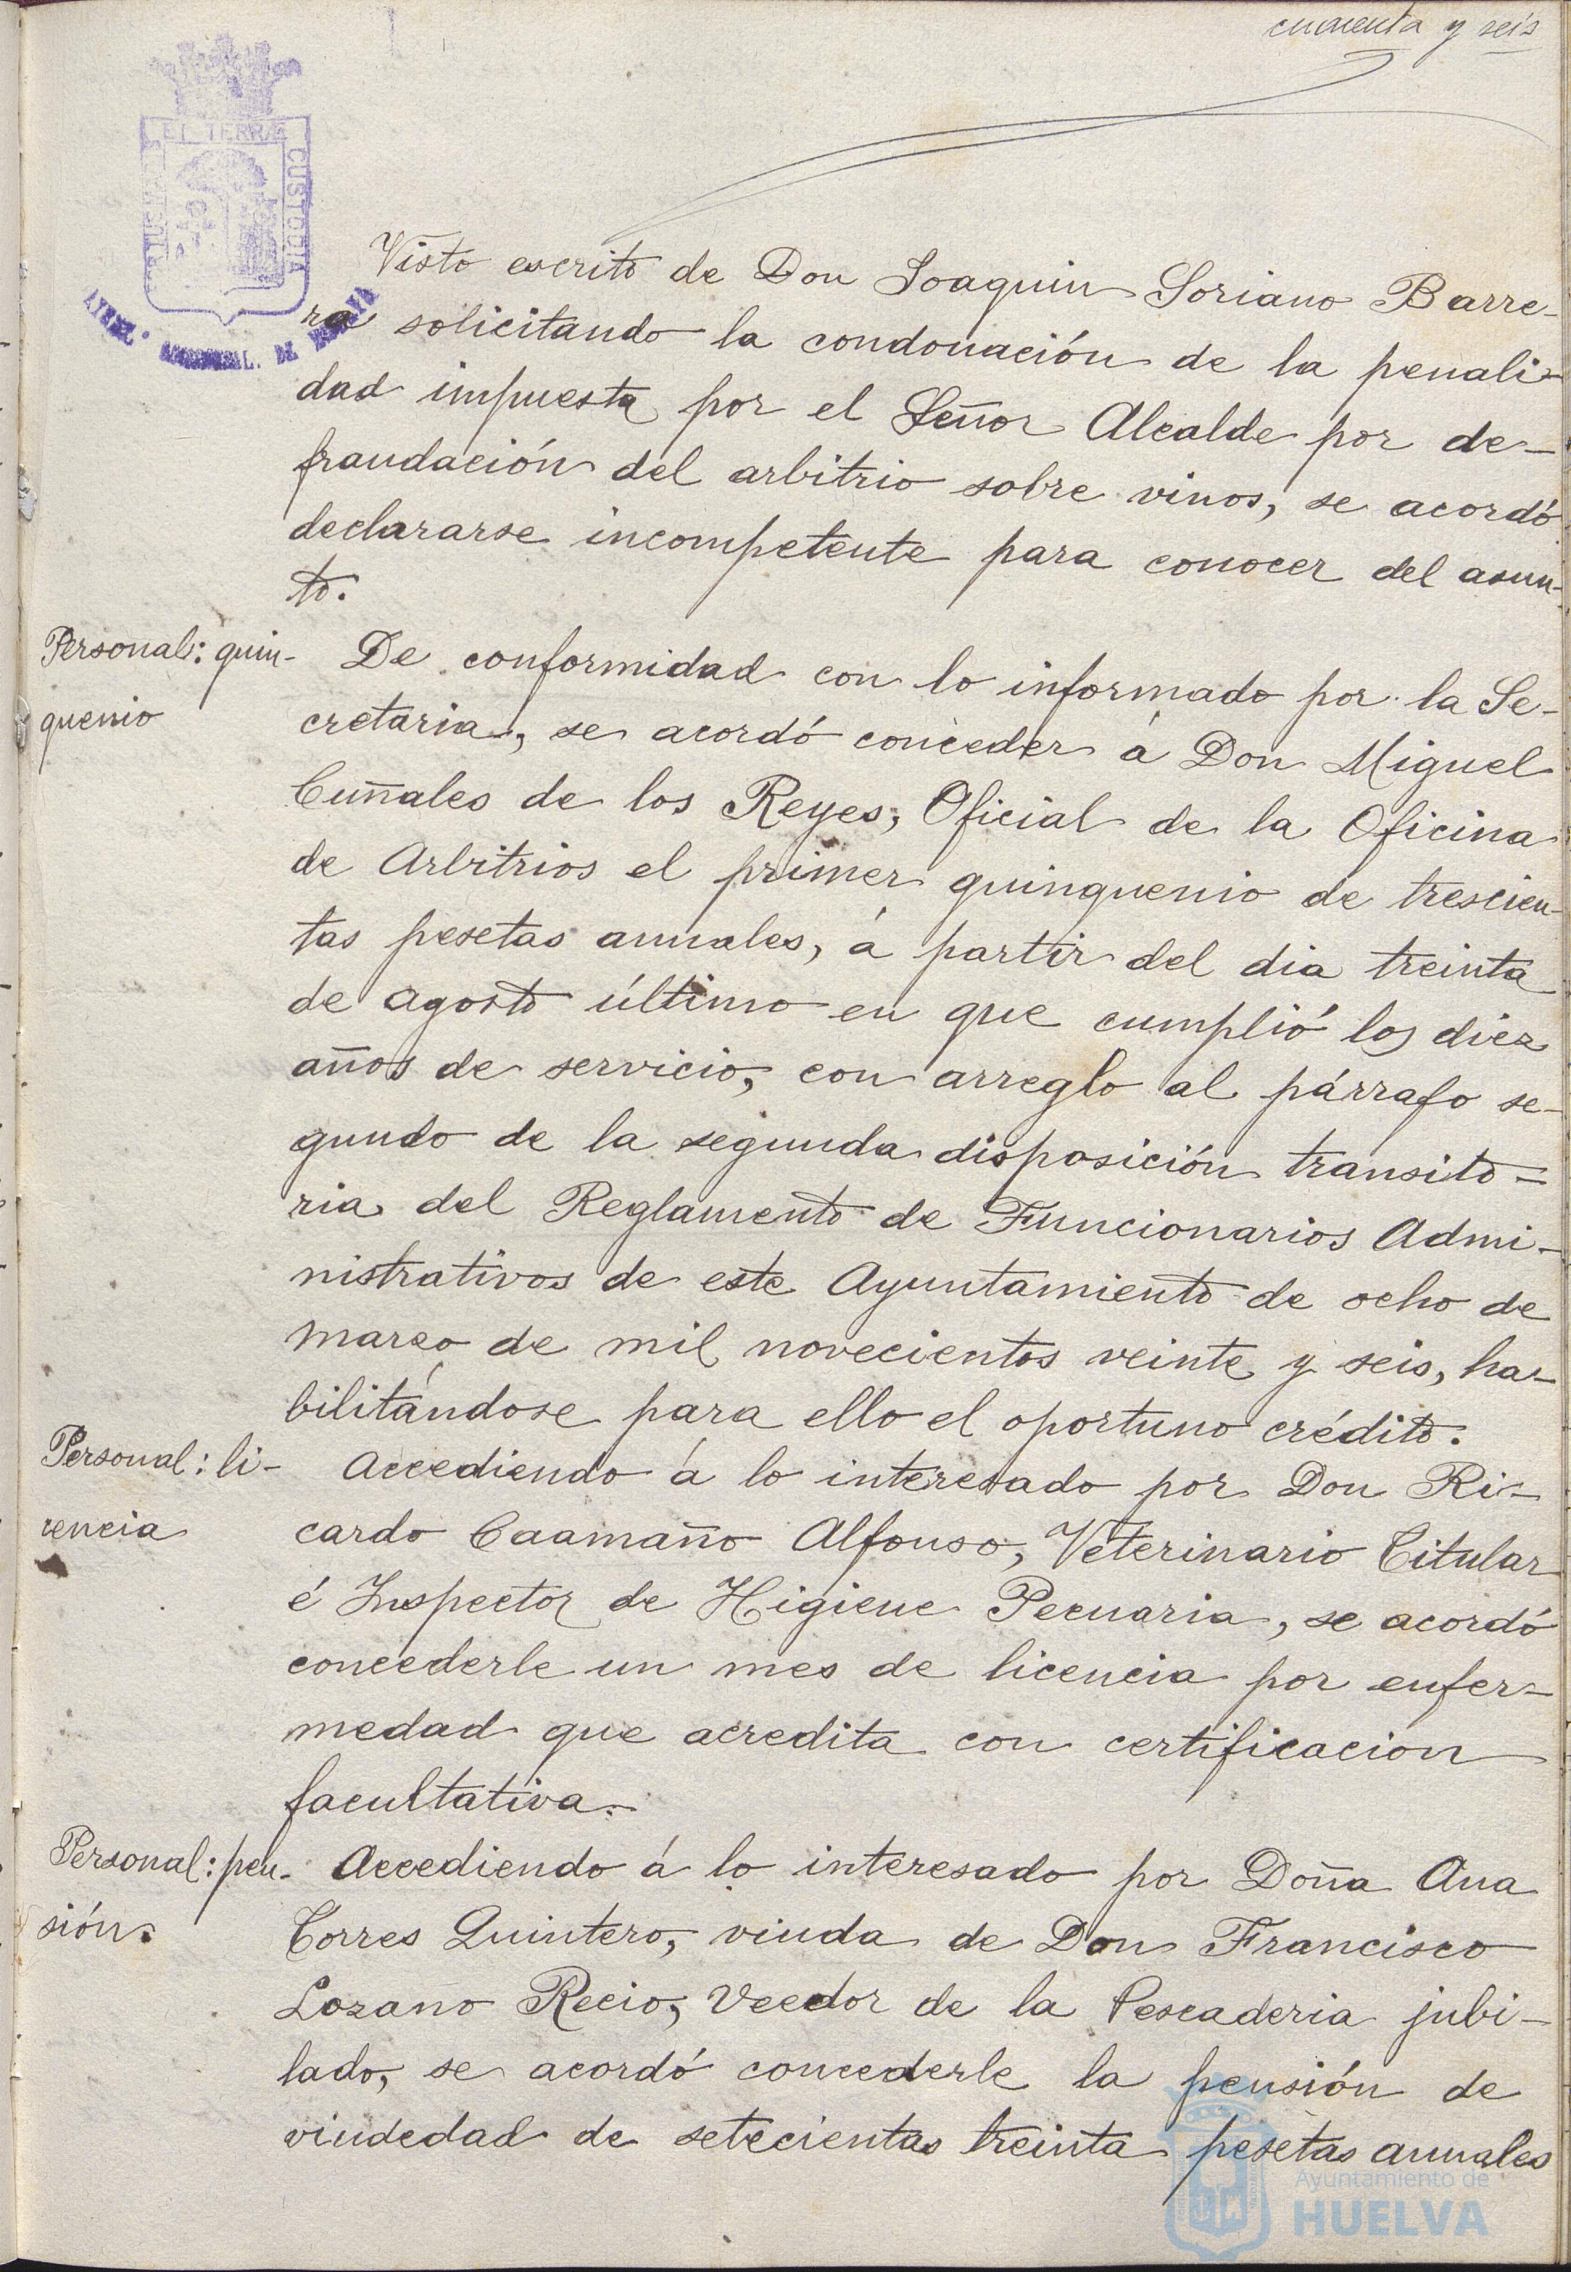 cuarenta y seis
PORTUS MARIS
ET TERRÆ
CUSTODIA
Visto escrito de Don Joaquin Soriano Barre-
ra solicitando la condonación de la penali-
dad impuesta por el Señor Alcalde por de-
fraudación del arbitrio sobre vinos, se acordó
declararse incompetente para conocer del asun-
to.
Personal: quin-
quenio
De conformidad con lo informado por la Se-
cretaria, se acordó conceder á Don Miguel
Cuñales de los Reyes, Oficial de la Oficina
de Arbitrios el primer quinquenio de trescien-
tas pesetas anuales, á partir del dia treinta
de agosto último en que cumplió los diez
años de servicio, con arreglo al párrafo se-
gundo de la segunda disposición transito=
ria del Reglamento de Funcionarios Admi-
nistrativos de este Ayuntamiento de ocho de
marzo de mil novecientos veinte y seis, ha-
bilitándose para ello el oportuno crédito.
Personal: li-
cencia
Accediendo á lo interesado por Don Ri-
cardo Caamaño Alfonso, Veterinario Titular
é Inspector de Higiene Pecuaria, se acordó
concederle un mes de licencia por enfer-
medad que acredita con certificacion
facultativa.
Personal: pen-
sión.
Accediendo á lo interesado por Doña Ana
Torres Quintero, viuda de Don Francisco
Lozano Recio, Veedor de la Pescaderia jubi-
lado, se acordó concederle la pensión de
viudedad de setecientas treinta pesetas anuales
Ayuntamiento de
HUELVA